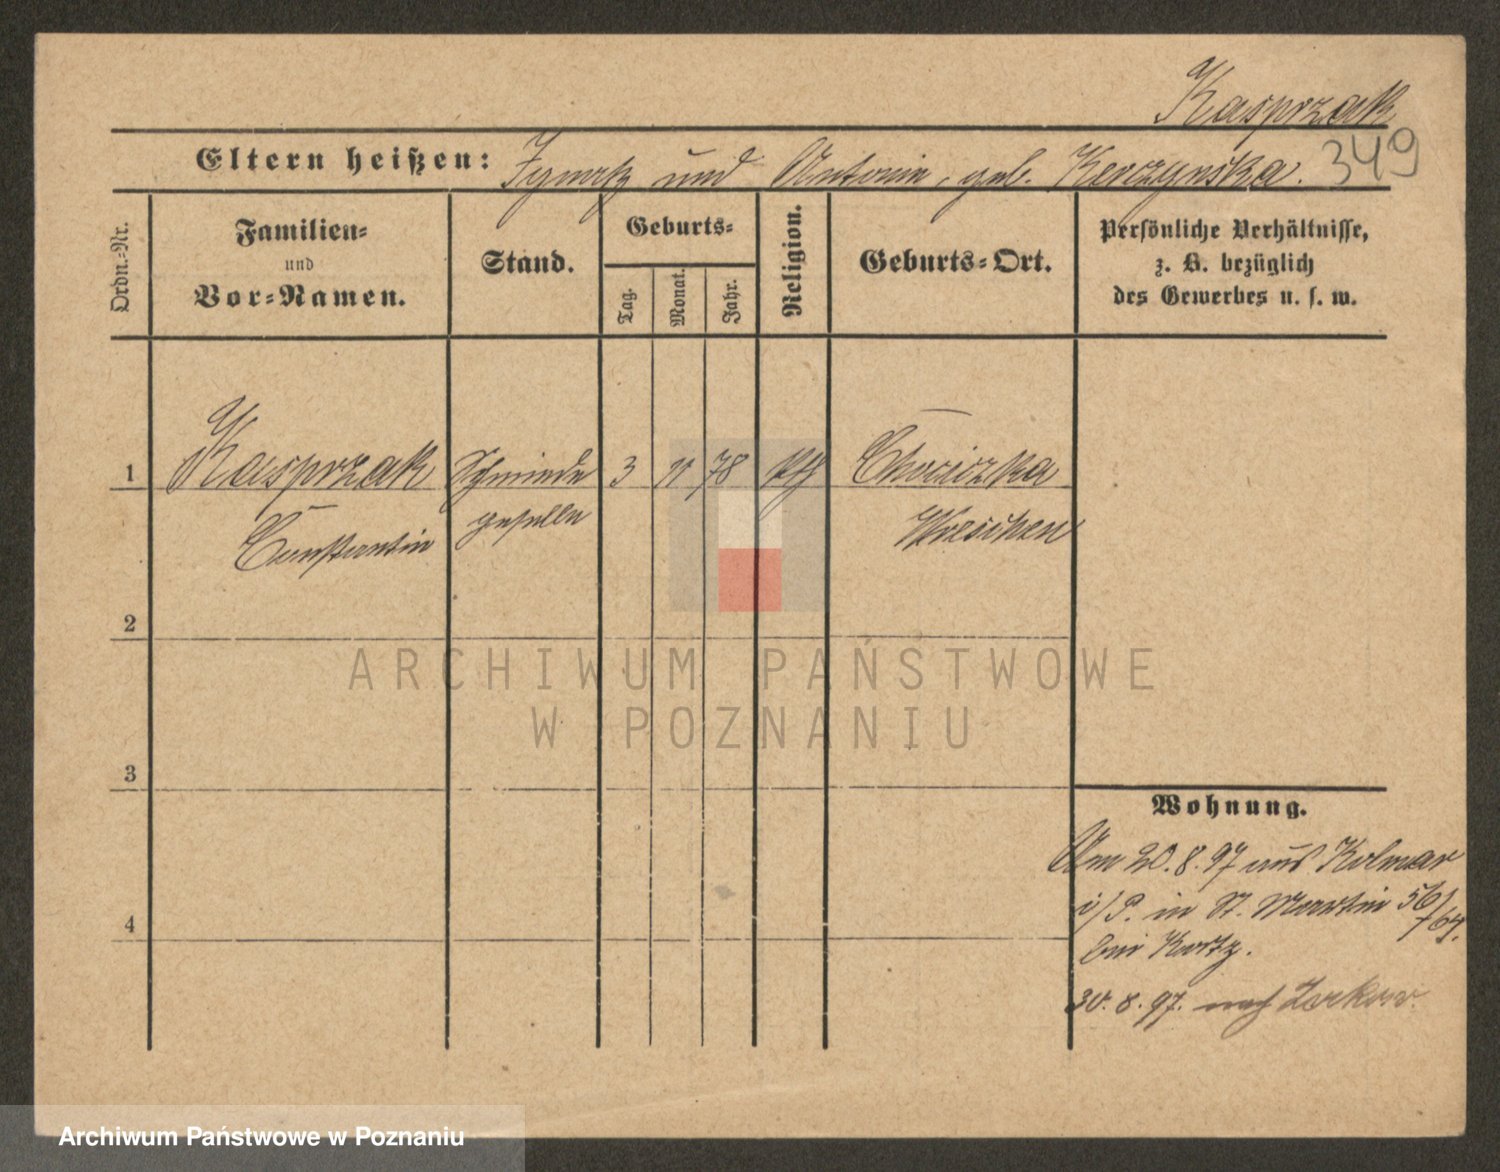 Kasprzak
Eltern heißen: Ignatz und Antonie, geb. Kerczynska. 349
Ordn.-Nr.
Familien-
und
Vor-Namen.
Stand.
Geburts-
Tag.
Monat.
Jahr.
Religion.
Geburts-Ort.
Persönliche Verhältnisse,
z. B. bezüglich
des Gewerbes u. s. w.
1 Kasprzak Schmiede 3 11 78 kth Chociczka
Constantin geselle Wreschen
2
3
4
Wohnung.
Am 20.8.97 aus Kolmar
i/P. in St. Martin 56/
bei Kartz.
30.8.97. nach Zerkow.
ARCHIWUM PAŃSTWOWE
W POZNANIU
Archiwum Państwowe w Poznaniu